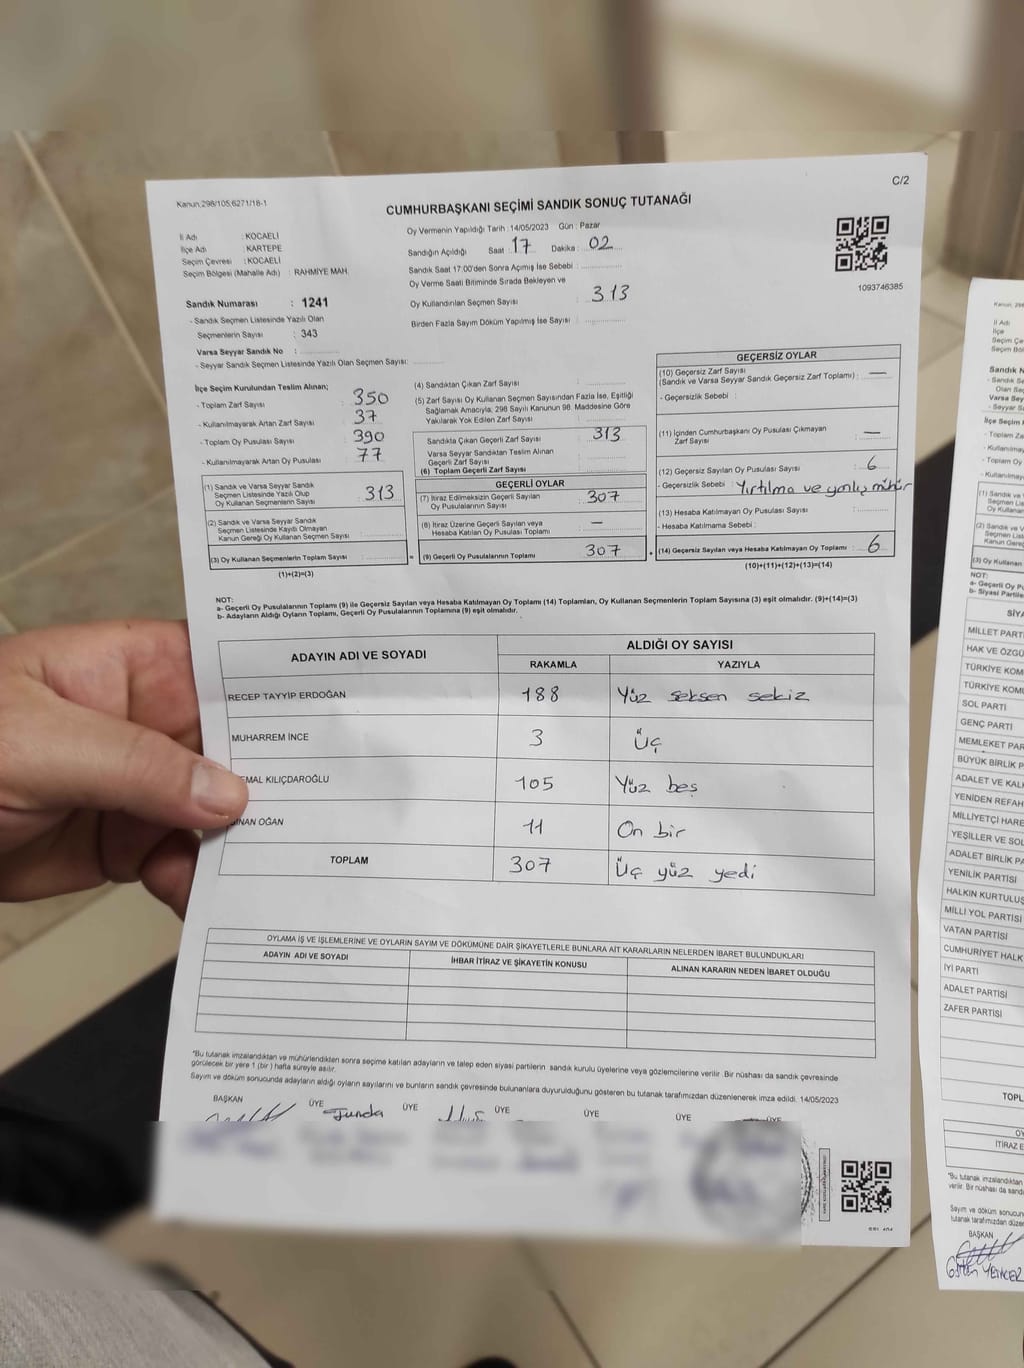 C/2
Kanun;298/105,6271/18-1
CUMHURBAŞKANI SEÇİMİ SANDIK SONUÇ TUTANAĞI
İl Adı : KOCAELİ
İlçe Adı : KARTEPE
Seçim Çevresi : KOCAELİ
Seçim Bölgesi (Mahalle Adı) : RAHMİYE MAH.
Oy Vermenin Yapıldığı Tarih : 14/05/2023 Gün : Pazar
Sandığın Açıldığı Saat : 17 Dakika : 02
Sandık Saat 17:00'den Sonra Açımış İse Sebebi :
Oy Verme Saati Bitiminde Sırada Bekleyen ve
Oy Kullandırılan Seçmen Sayısı : 313
Birden Fazla Sayım Döküm Yapılmış İse Sayısı :
1093746385
Sandık Numarası : 1241
- Sandık Seçmen Listesinde Yazılı Olan
Seçmenlerin Sayısı : 343
Varsa Seyyar Sandık No :
- Seyyar Sandık Seçmen Listesinde Yazılı Olan Seçmen Sayısı:
İlçe Seçim Kurulundan Teslim Alınan;
- Toplam Zarf Sayısı : 350
- Kullanılmayarak Artan Zarf Sayısı : 37
- Toplam Oy Pusulası Sayısı : 390
- Kullanılmayarak Artan Oy Pusulası : 77
(1) Sandık ve Varsa Seyyar Sandık
Seçmen Listesinde Yazılı Olup
Oy Kullanan Seçmenlerin Sayısı : 313
(2) Sandık ve Varsa Seyyar Sandık
Seçmen Listesinde Kayıtlı Olmayan
Kanun Gereği Oy Kullanan Seçmen Sayısı :
(3) Oy Kullanan Seçmenlerin Toplam Sayısı :
(1)+(2)=(3)
(4) Sandıktan Çıkan Zarf Sayısı :
(5) Zarf Sayısı Oy Kullanan Seçmen Sayısından Fazla İse, Eşitliği
Sağlamak Amacıyla; 298 Sayılı Kanunun 98. Maddesine Göre
Yakılarak Yok Edilen Zarf Sayısı :
Sandıkta Çıkan Geçerli Zarf Sayısı : 313
Varsa Seyyar Sandıktan Teslim Alınan
Geçerli Zarf Sayısı
(6) Toplam Geçerli Zarf Sayısı
GEÇERLİ OYLAR
(7) İtiraz Edilmeksizin Geçerli Sayılan
Oy Pusulalarının Sayısı : 307
(8) İtiraz Üzerine Geçerli Sayılan veya
Hesaba Katılan Oy Pusulası Sayısı : —
(9) Geçerli Oy Pusulalarının Toplamı : 307
GEÇERSİZ OYLAR
(10) Geçersiz Zarf Sayısı
(Sandık ve Varsa Seyyar Sandık Geçersiz Zarf Toplamı) : —
- Geçersizlik Sebebi :
(11) İçinden Cumhurbaşkanı Oy Pusulası Çıkmayan
Zarf Sayısı : —
(12) Geçersiz Sayılan Oy Pusulası Sayısı : 6
- Geçersizlik Sebebi : Yırtılma ve yanlış mühür
(13) Hesaba Katılmayan Oy Pusulası Sayısı :
- Hesaba Katılmama Sebebi :
(14) Geçersiz Sayılan veya Hesaba Katılmayan Oy Toplamı : 6
(10)+(11)+(12)+(13)=(14)
NOT:
a- Geçerli Oy Pusulalarının Toplamı (9) ile Geçersiz Sayılan veya Hesaba Katılmayan Oy Toplamı (14) Toplamları, Oy Kullanan Seçmenlerin Toplam Sayısına (3) eşit olmalıdır. (9)+(14)=(3)
b- Adayların Aldığı Oyların Toplamı, Geçerli Oy Pusulalarının Toplamına (9) eşit olmalıdır.
ADAYIN ADI VE SOYADI ALDIĞI OY SAYISI
RAKAMLA YAZIYLA
RECEP TAYYİP ERDOĞAN 188 Yüz seksen sekiz
MUHARREM İNCE 3 Üç
EMAL KILIÇDAROĞLU 105 Yüz beş
İNAN OĞAN 11 On bir
TOPLAM 307 Üç yüz yedi
OYLAMA İŞ VE İŞLEMLERİNE VE OYLARIN SAYIM VE DÖKÜMÜNE DAİR ŞİKAYETLERLE BUNLARA AİT KARARLARIN NELERDEN İBARET BULUNDUKLARI
ADAYIN ADI VE SOYADI İHBAR İTİRAZ VE ŞİKAYETİN KONUSU ALINAN KARARIN NEDEN İBARET OLDUĞU
*Bu tutanak imzalandıktan ve mühürlendikten sonra seçime katılan adayların ve talep eden siyasi partilerin sandık kurulu üyelerine veya gözlemcilerine verilir. Bir nüshası da sandık çevresinde
görülecek bir yere 1 (bir) hafta süreyle asılır.
Sayım ve döküm sonucunda adayların aldığı oyların sayılarını ve bunların sandık çevresinde bulunanlara duyurulduğunu gösteren bu tutanak tarafımızdan düzenlenerek imza edildi. 14/05/2023
BAŞKAN ÜYE ÜYE ÜYE ÜYE ÜYE ÜYE
Funda
İl Adı
İlçe
Seçim Çe
Seçim Böl
Sandık N
- Sandık Se
Olan Seç
Varsa Sey
- Seyyar S
İlçe Seçim
- Toplam Zarf
- Kullanılmaya
- Toplam Oy P
- Kullanılmayar
NOT:
a- Geçerli Oy P
b- Siyasi Partile
SİYA
MİLLET PARTİ
HAK VE ÖZGÜ
TÜRKİYE KOM
TÜRKİYE KOMÜ
SOL PARTİ
GENÇ PARTİ
MEMLEKET PAR
BÜYÜK BİRLİK P
ADALET VE KAL
YENİDEN REFAH
MİLLİYETÇİ HARE
YEŞİLLER VE SOL
ADALET BİRLİK PA
YENİLİK PARTİSİ
HALKIN KURTULUŞ
MİLLİ YOL PARTİSİ
VATAN PARTİSİ
CUMHURİYET HALK
İYİ PARTİ
ADALET PARTİSİ
ZAFER PARTİSİ
TOPL
İTİRAZ E
*Bu tutanak imzalandıktan
verilir. Bir nüshası da sand
Sayım ve döküm sonucun
tutanak tarafımızdan düze
BAŞKAN